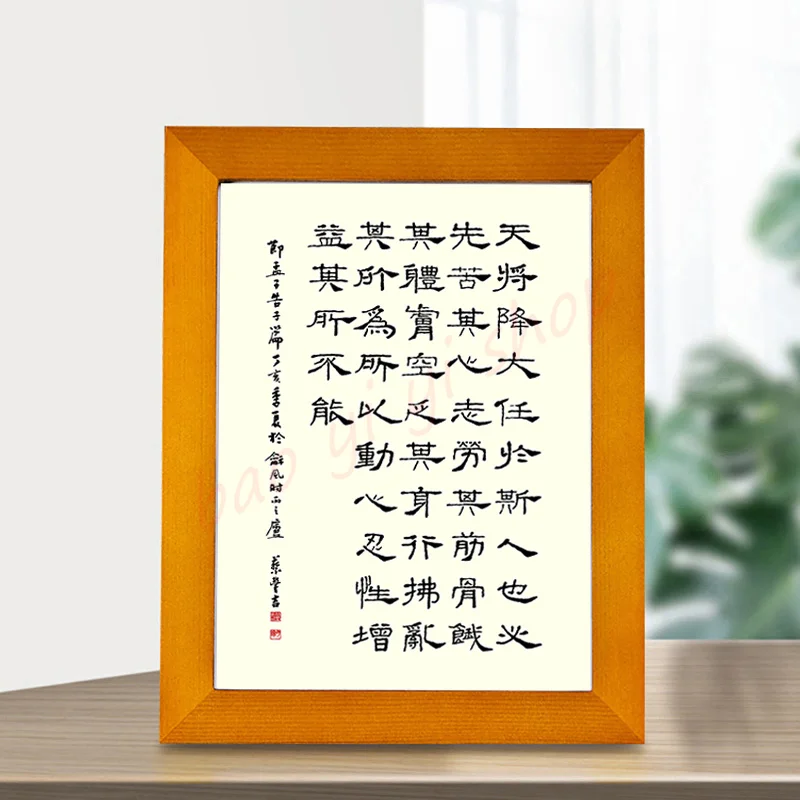 天將降大任於斯人也必
先苦其心志勞其筋骨餓
其體膚空乏其身行拂亂
其所爲所以動心忍性增
益其所不能
節孟子告子篇丁亥季夏於龢風时雨之廬
bao